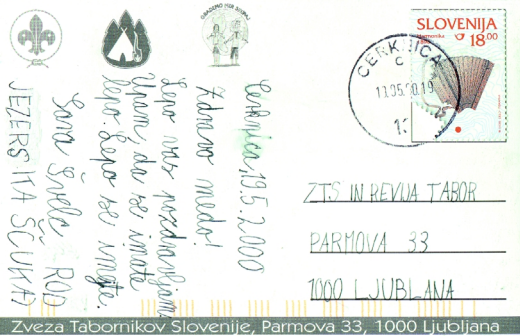 SLOVENIJA
18.00
CERKNICA
Cerknica, 19.5.2000
Zdravo medo!
Lepo vas pozdravljamo
Upam, da se imate
lepo. Lepo se imejte.
Sara Švelc ROD
JEZERSKA ŠČUKA
ZTS IN REVIJA TABOR
PARMOVA 33
1000 LJUBLJANA
Zveza Tabornikov Slovenije, Parmova 33, 1000 Ljubljana